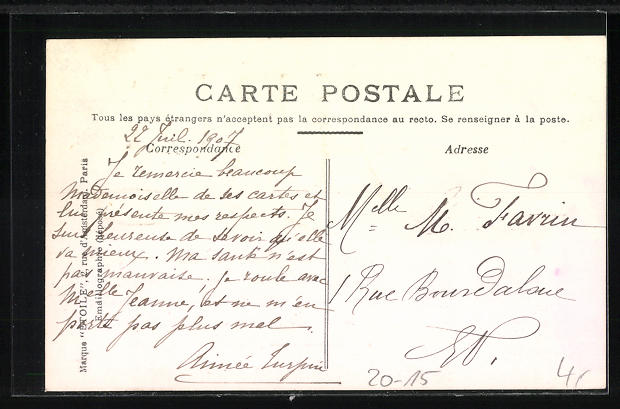 CARTE POSTALE
Tous les pays étrangers n'acceptent pas la correspondance au recto. Se renseigner à la poste.
22 Juil. 1907
Correspondance
Je remercie beaucoup
Mademoiselle de ses cartes et
lui présente mes respects. Je
suis heureuse de savoir qu'elle
va mieux. Ma santé n'est
pas mauvaise. Je roule avec
Melle Jeanne, et ne m'en
porte pas plus mal.
Aimée Turpin
Adresse
Melle M. Favrin
1 Rue Bourdaloue
EV.
20-15
4
Marque "ETOILE", rue d'Amsterdam, Paris
Emaillographie (déposé)